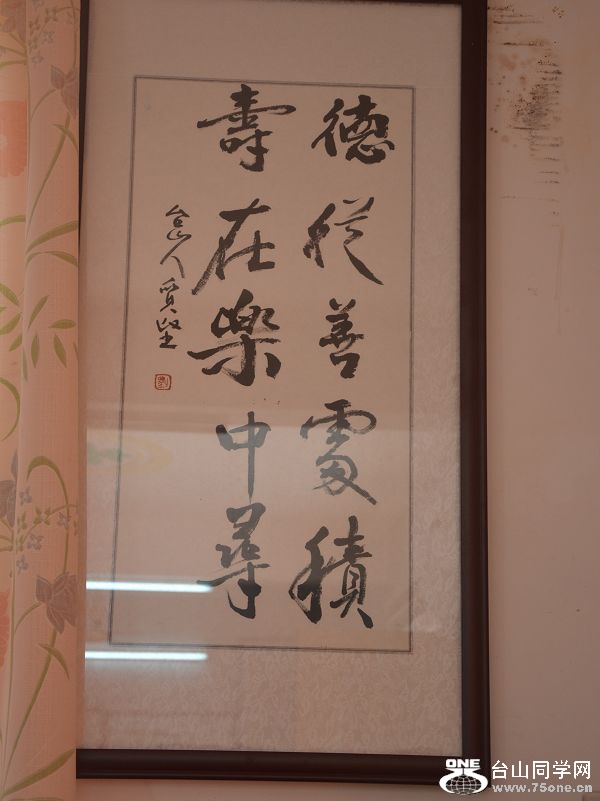 德從善處積
壽在樂中尋
台山人質堅
ONE
台山同学网
www.75one.cn